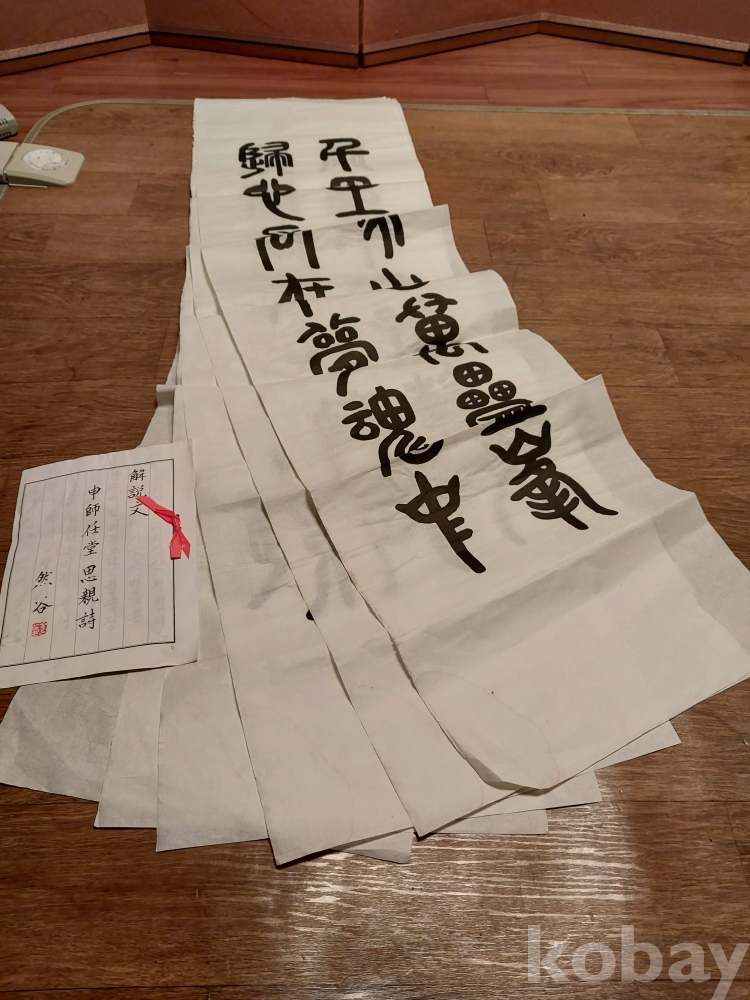 千里家山萬疊峯
歸心長在夢魂中
解說文
申師任堂 思親詩
然谷
kobay